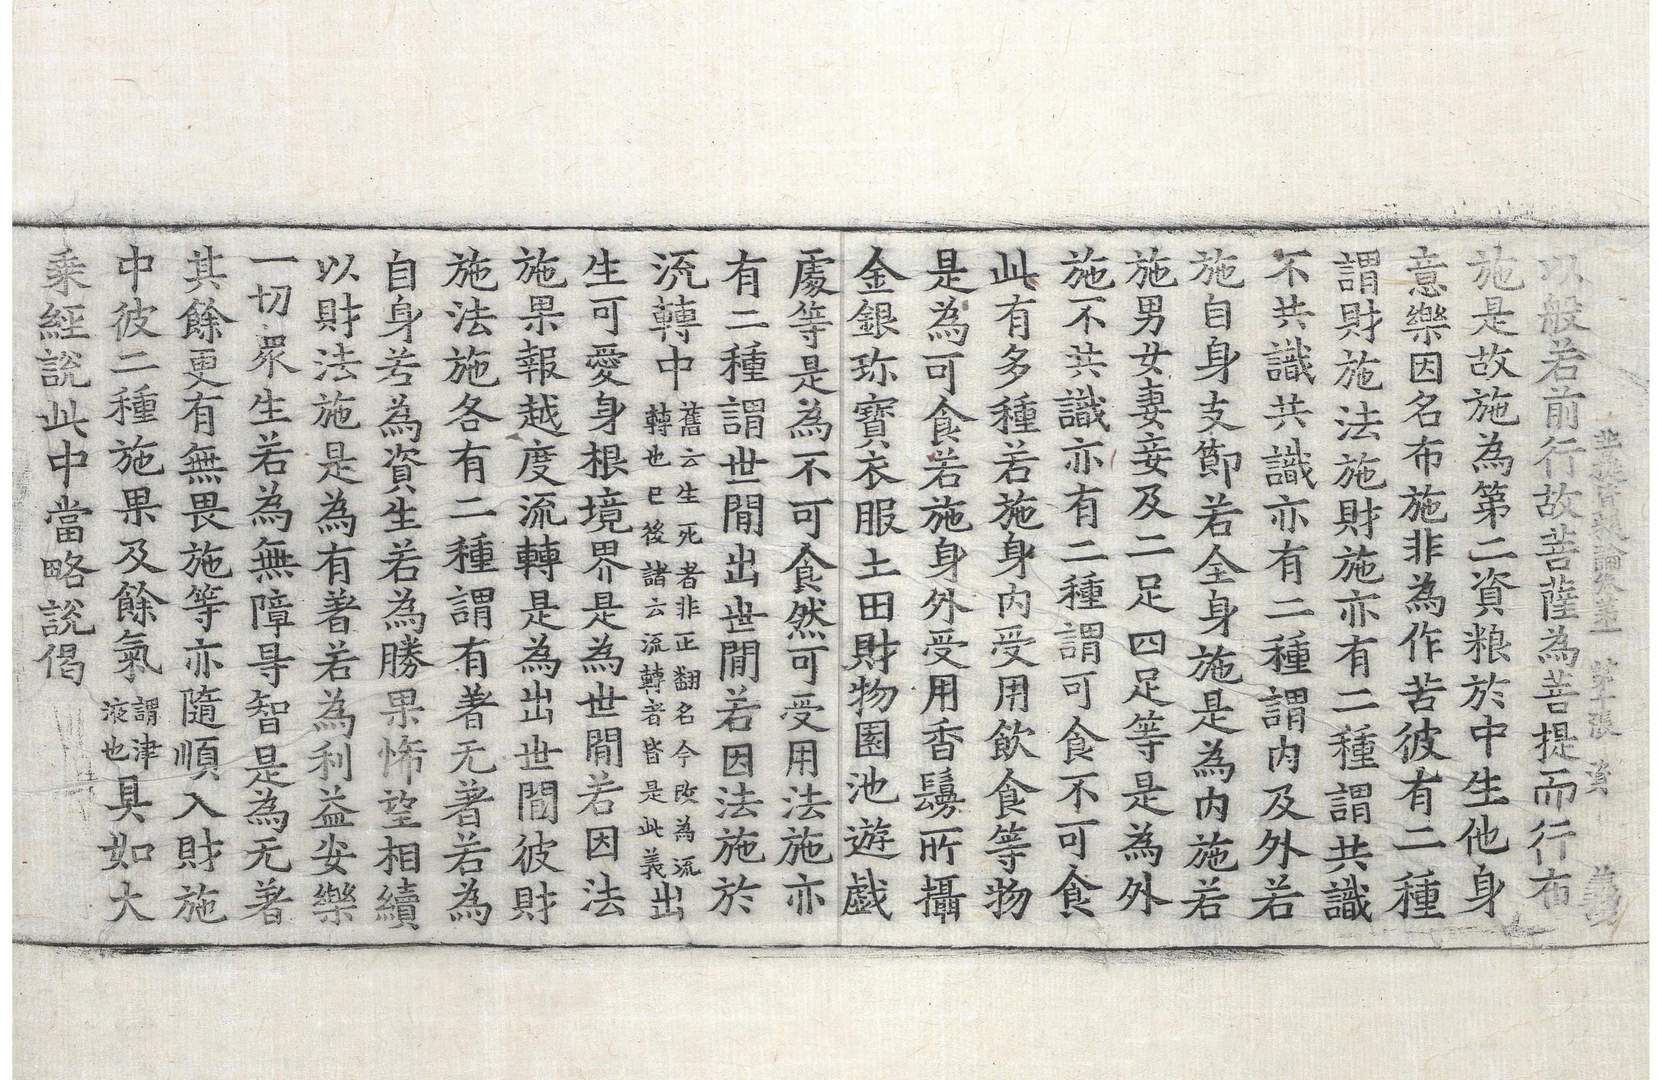 菩提資粮論卷第一 第十張 資 義
以般若前行故菩薩為菩提而行布
施是故施為第二資粮於中生他身
意樂因名布施非為作苦彼有二種
謂財施法施財施亦有二種謂共識
不共識共識亦有二種謂內及外若
施自身支節若全身施是為內施若
施男女妻妾及二足四足等是為外
施不共識亦有二種謂可食不可食
此有多種若施身內受用飲食等物
是為可食若施身外受用香鬘所攝
金銀珎寶衣服土田財物園池遊戲
處等是為不可食然可受用法施亦
有二種謂世間出世間若因法施於
流轉中舊云生死者非正翻名今改為流轉也已後諸云流轉者皆是此義出
生可愛身根境界是為世間若因法
施果報越度流轉是為出世間彼財
施法施各有二種謂有著无著若為
自身若為資生若為勝果悕望相續
以財法施是為有著若為利益安樂
一切眾生若為無障㝵智是為无著
其餘更有無畏施等亦隨順入財施
中彼二種施果及餘氣謂津液也具如大
乘經說此中當略說偈